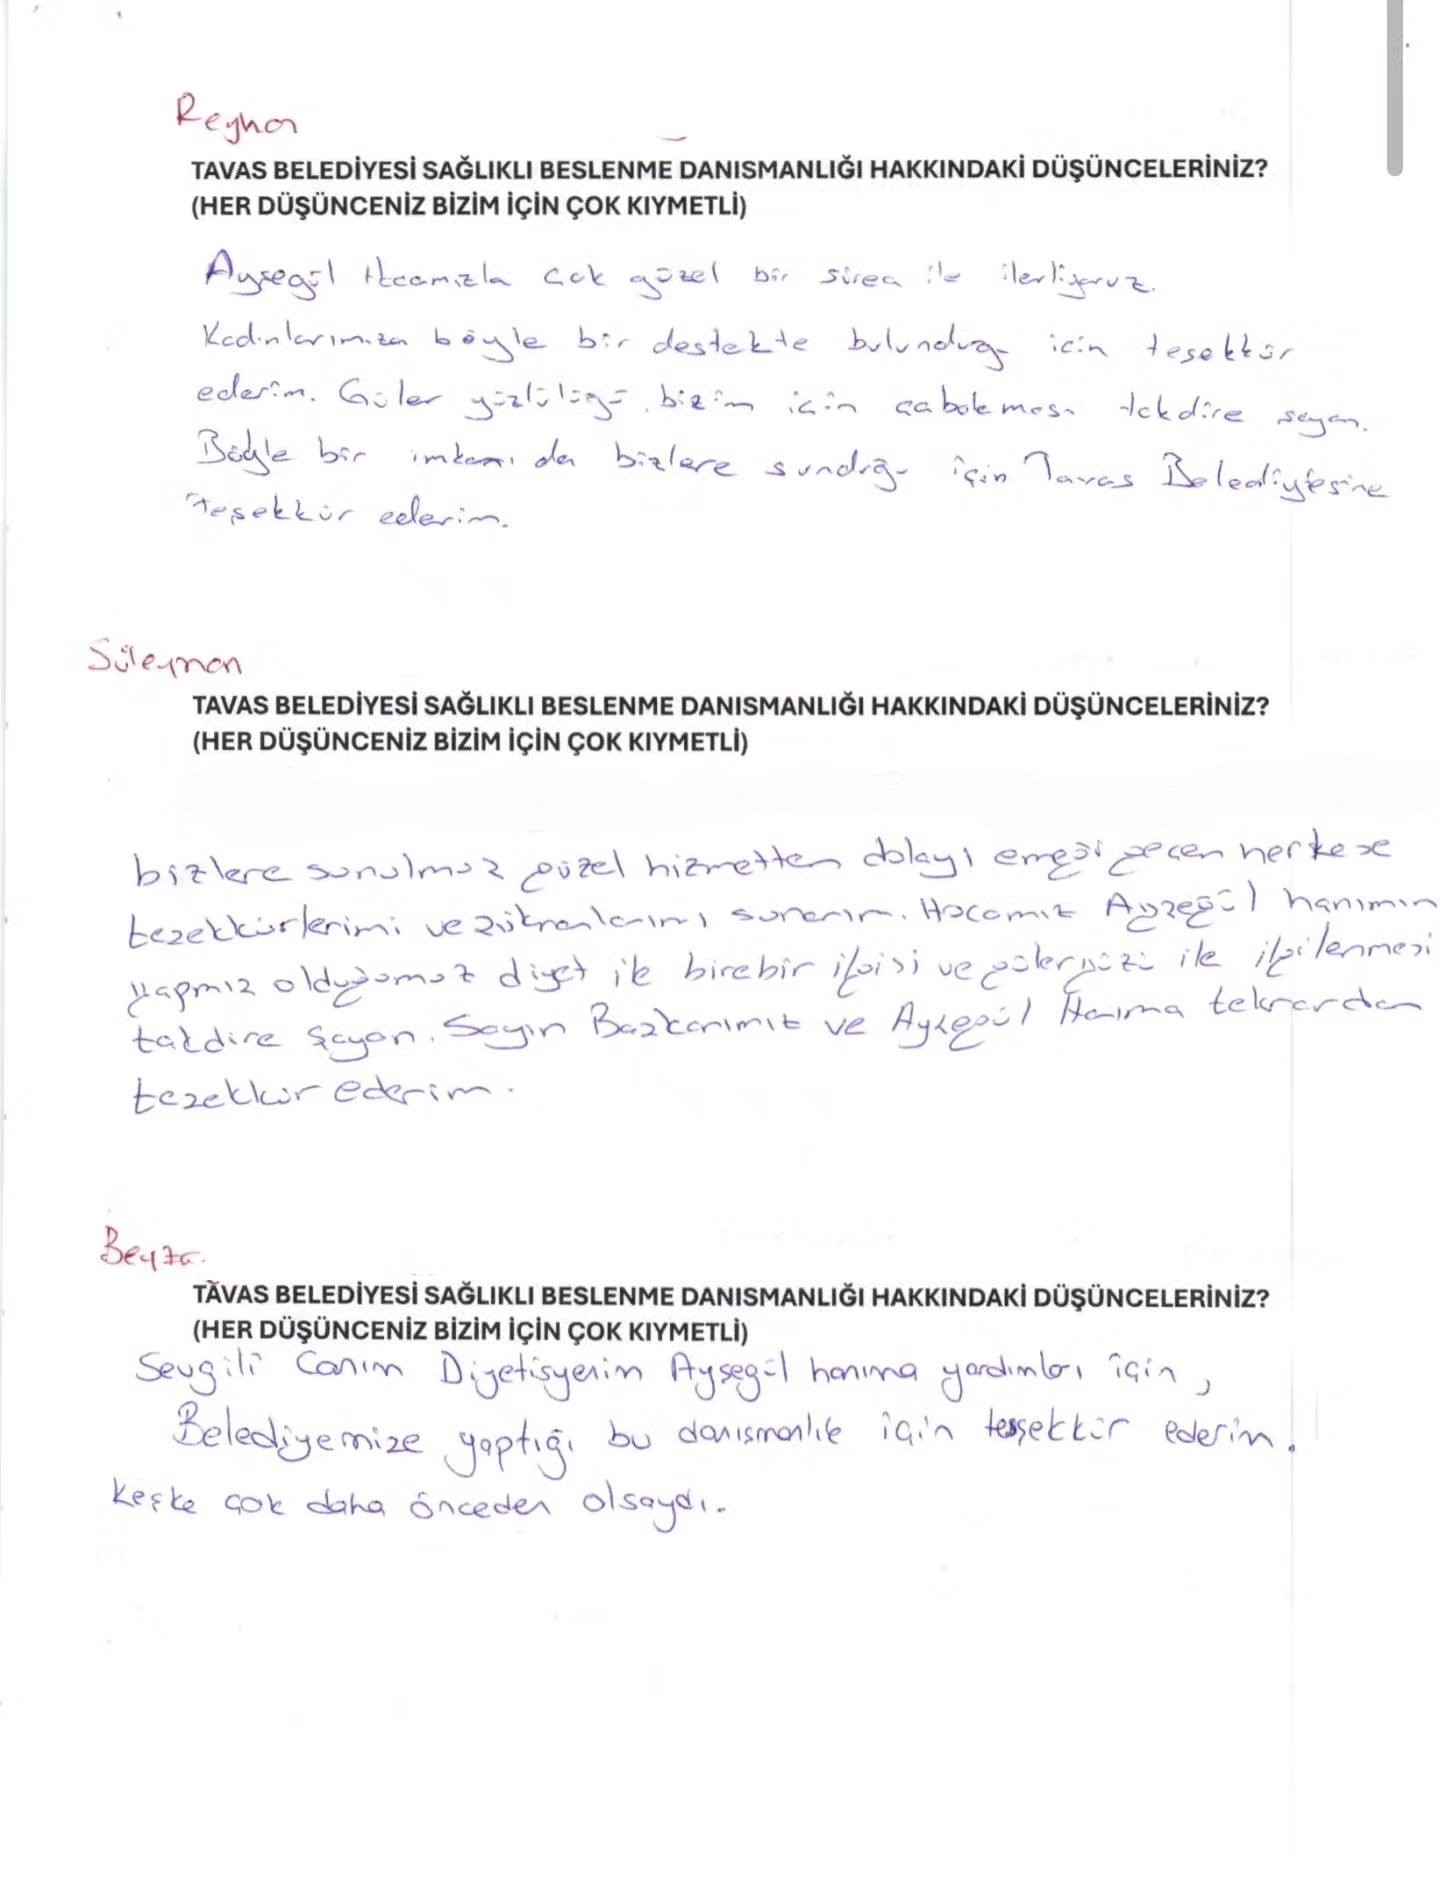 Reyhan
TAVAS BELEDİYESİ SAĞLIKLI BESLENME DANISMANLIĞI HAKKINDAKİ DÜŞÜNCELERİNİZ?
(HER DÜŞÜNCENİZ BİZİM İÇİN ÇOK KIYMETLİ)
Ayşegül Hocamızla çok güzel bir süreç ile ilerliyoruz.
Kadınlarımıza böyle bir destekte bulunduğu için teşekkür
ederim. Güler yüzlülüğü, bizim için çabalaması takdire şayan.
Böyle bir imkanı da bizlere sunduğu için Tavas Belediyesine
teşekkür ederim.
Süleyman
TAVAS BELEDİYESİ SAĞLIKLI BESLENME DANISMANLIĞI HAKKINDAKİ DÜŞÜNCELERİNİZ?
(HER DÜŞÜNCENİZ BİZİM İÇİN ÇOK KIYMETLİ)
bizlere sunulmuş güzel hizmetten dolayı emeği geçen herkese
teşekkürlerimi ve şükranlarımı sunarım. Hocamız Ayşegül hanımın
yapmış olduğumuz diyet ile birebir ilgisi ve güleryüzü ile ilgilenmesi
takdire şayan. Sayın Başkanımız ve Ayşegül Hanıma tekrardan
teşekkür ederim.
Beyza.
TAVAS BELEDİYESİ SAĞLIKLI BESLENME DANISMANLIĞI HAKKINDAKİ DÜŞÜNCELERİNİZ?
(HER DÜŞÜNCENİZ BİZİM İÇİN ÇOK KIYMETLİ)
Sevgili Canım Diyetisyenim Ayşegül hanıma yardımları için,
Belediyemize yaptığı bu danışmanlık için teşşekkür ederim.
Keşke çok daha önceden olsaydı.